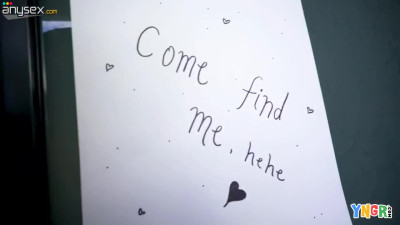 anysex.com
Come find
me, hehe
YNGR